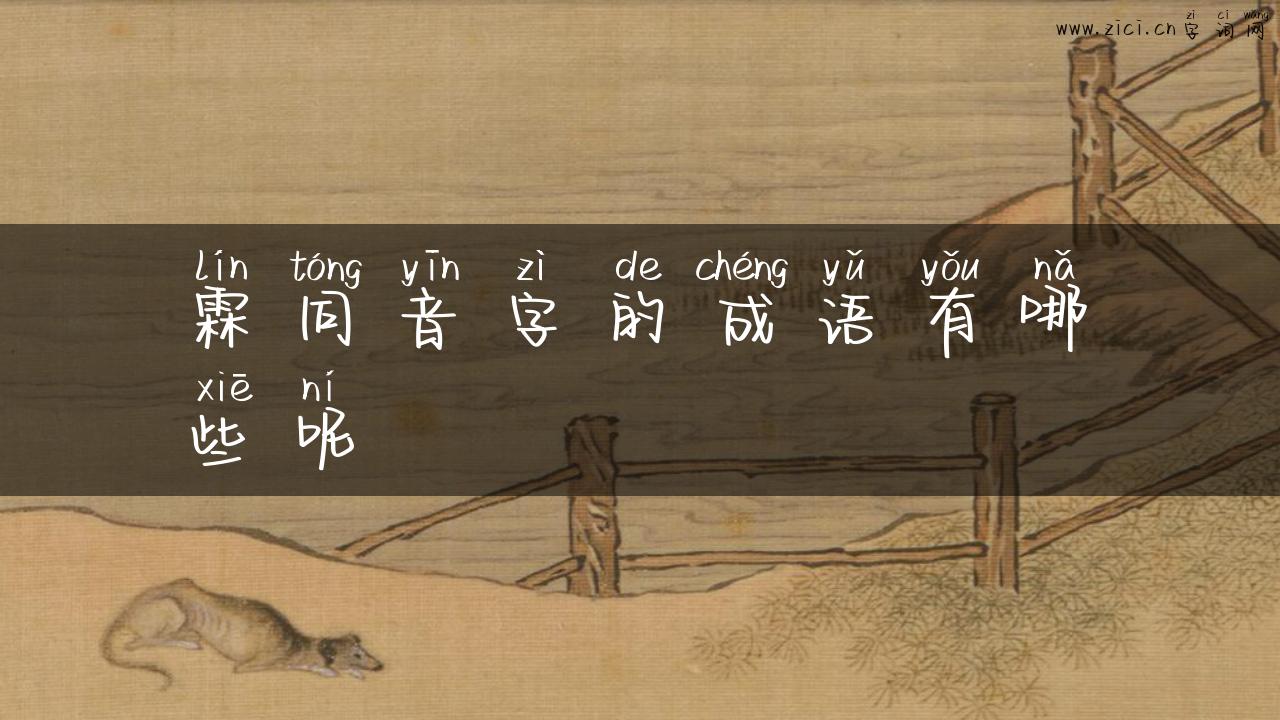 zì cí wǎng
www.zici.cn 字词网
lín tóng yīn zì de chéng yǔ yǒu nǎ
霖同音字的成语有哪
xiē ní
些呢